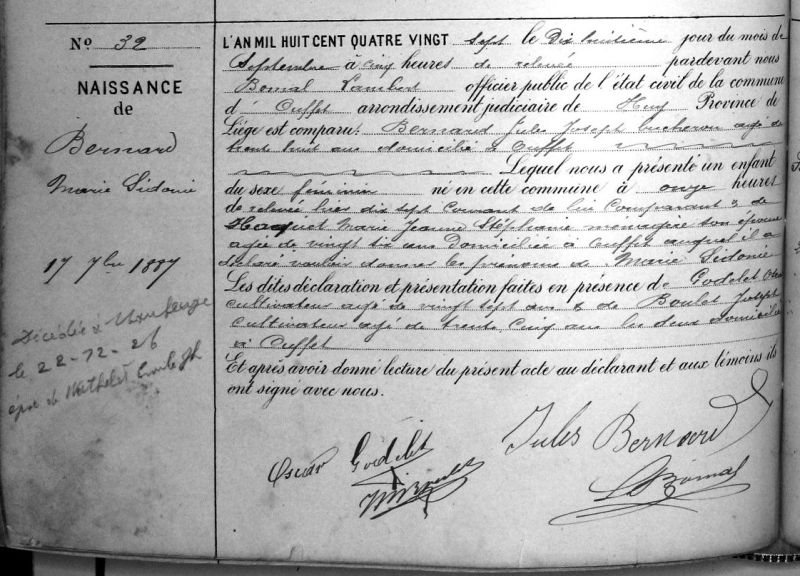 N° 32
NAISSANCE
de
Bernard
Marie Sidonie
17 7bre 1887
Décédée à
le 22-12-26
épse de Mathelet
L'AN MIL HUIT CENT QUATRE VINGT sept le Dix huitième jour du mois de
Septembre à cinq heures de relevée pardevant nous
Bomal Lambert officier public de l'état civil de la commune
d' Ouffet arrondissement judiciaire de Huy Province de
Liége est comparu: Bernard Jules Joseph bucheron agé de
trente huit ans domicilié à Ouffet
Lequel nous a présenté un enfant
du sexe féminin né en cette commune à onze heures
de relevée hier dix sept courant de lui Comparant & de
Haquet Marie Jeanne Stéphanie ménagère son épouse
agée de vingt six ans Domiciliée à Ouffet auquel il a
déclaré vouloir donner les prénoms de Marie Sidonie
Les dites déclaration et présentation faites en présence de Godelet Oscar
cultivateur agé de vingt sept ans & de Boulet Joseph
cultivateur agé de trente cinq ans les deux domiciliés
à Ouffet
Et après avoir donné lecture du présent acte au déclarant et aux témoins ils
ont signé avec nous.
Oscar Godelet
Jules Bernard
L Bomal